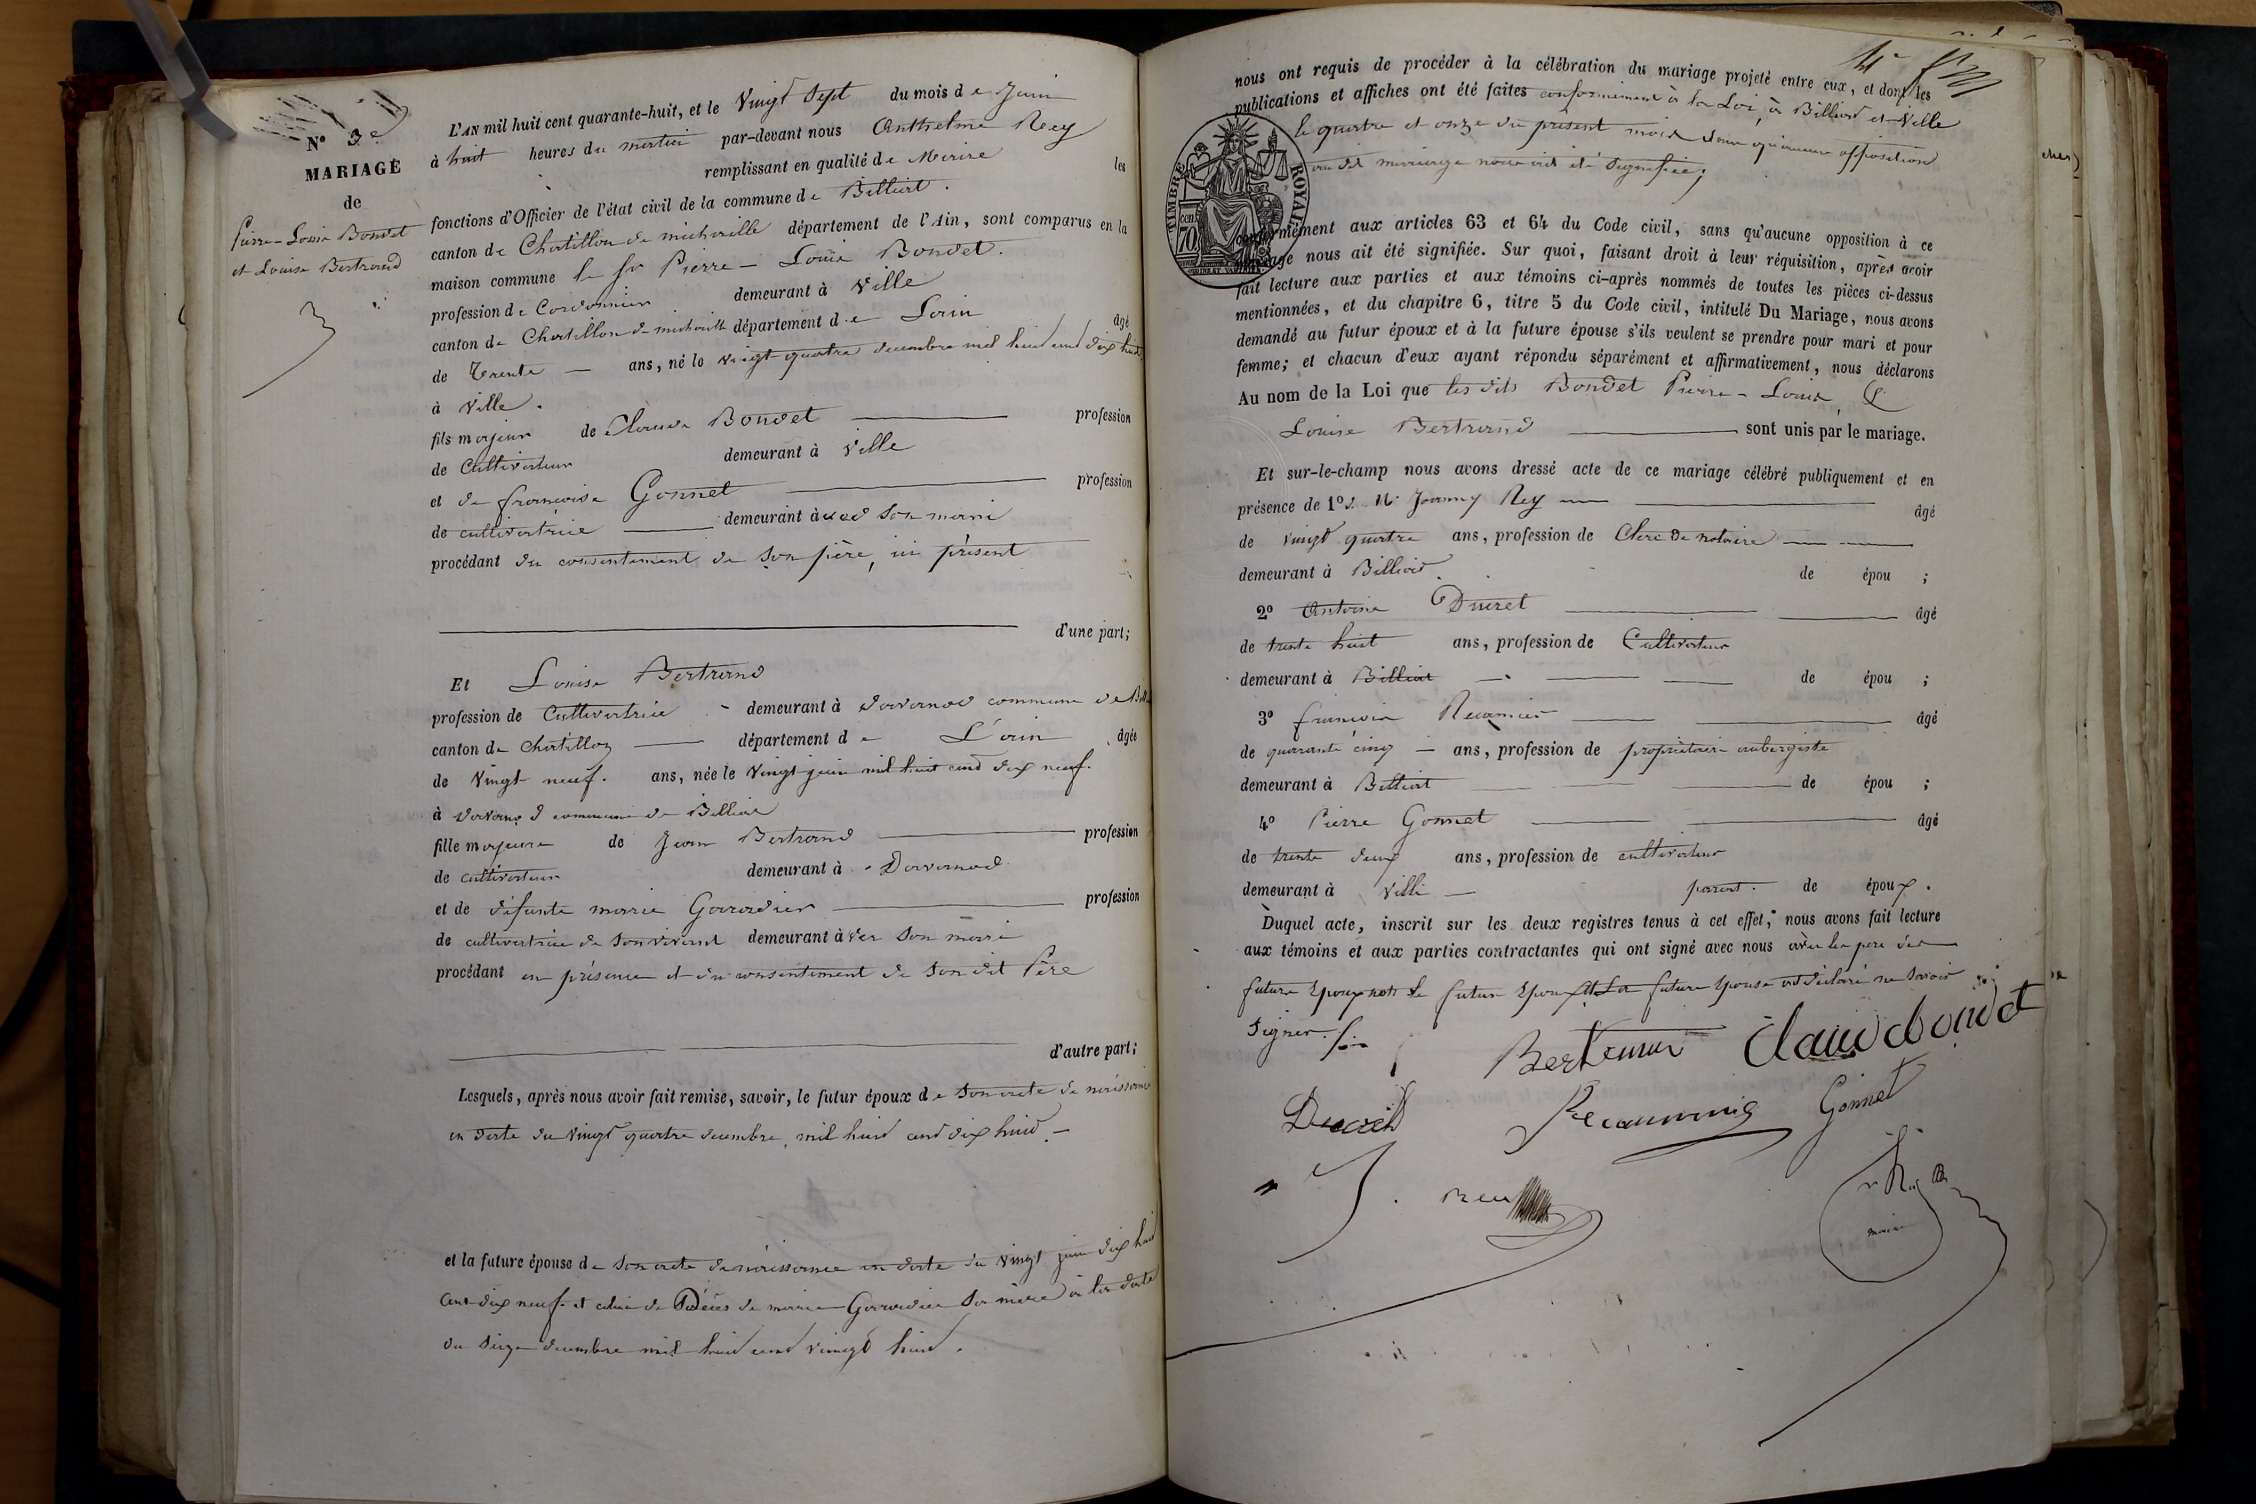 N° 3e
MARIAGE
de
Pierre-Louis Bondet
et Louise Bertrand
L'AN mil huit cent quarante-huit, et le Vingt Sept du mois de Juin
à huit heures du matin par-devant nous Anthelme Rey
remplissant en qualité de Maire les
fonctions d'Officier de l'état civil de la commune de Billiat.
canton de Chatillon de michaille département de l'Ain, sont comparus en la
maison commune le Sr Pierre-Louis Bondet.
profession de Cordonnier demeurant à Ville
canton de Chatillon de michaille département de Lain âgé
de Trente ans, né le vingt quatre decembre mil huit cent dix huit
à Ville.
fils majeur de Claude Bondet profession
de Cultivateur demeurant à Ville
et de françoise Gonnet profession
de cultivatrice demeurant à avec son mari
procédant du consentement de son père, ici présent
d'une part;
Et Louise Bertrand
profession de Cultivatrice demeurant à Davanod commune de Bill
canton de Chatillon département de L'ain âgée
de Vingt neuf. ans, née le Vingt juin mil huit cent dix neuf.
à Davanod commune de Billiat
fille majeure de Jean Bertrand profession
de cultivateur demeurant à Davanod
et de défunte marie profession
de cultivatrice de son vivant demeurant à son mari
procédant en présence et du consentement de son dit Père
d'autre part;
Lesquels, après nous avoir fait remise, savoir, le futur époux de Son acte de naissance
en date du Vingt quatre decembre mil huit cent dix huit.
et la future épouse de Son acte de naissance en date du Vingt juin dix huit
cent dix neuf et celui de Décès de marie sa mère à la date
du seize decembre mil huit cent vingt huit.
nous ont requis de procéder à la célébration du mariage projeté entre eux, et dont les
publications et affiches ont été faites conformément à la Loi, à Billiat et Ville
le quatre et onze du présent mois sans qu'aucune opposition
au dit mariage nous ait été signifiée;
TIMBRE ROYAL
70 cen
conformément aux articles 63 et 64 du Code civil, sans qu'aucune opposition à ce
mariage nous ait été signifiée. Sur quoi, faisant droit à leur réquisition, après avoir
fait lecture aux parties et aux témoins ci-après nommés de toutes les pièces ci-dessus
mentionnées, et du chapitre 6, titre 5 du Code civil, intitulé Du Mariage, nous avons
demandé au futur époux et à la future épouse s'ils veulent se prendre pour mari et pour
femme; et chacun d'eux ayant répondu séparément et affirmativement, nous déclarons
Au nom de la Loi que les dits Bondet Pierre-Louis &
Louise Bertrand sont unis par le mariage.
Et sur-le-champ nous avons dressé acte de ce mariage célébré publiquement et en
présence de 1° Joanny Rey âgé
de vingt quatre ans, profession de Clerc de notaire
demeurant à Billiat. de épou ;
2° Antoine Ducret âgé
de trente huit ans, profession de Cultivateur
demeurant à Billiat de épou ;
3° françois Recamier âgé
de quarante cinq ans, profession de propriétaire aubergiste
demeurant à Billiat de épou ;
4° Pierre Gonnet âgé
de trente deux ans, profession de cultivateur
demeurant à Ville parent. de époux.
Duquel acte, inscrit sur les deux registres tenus à cet effet, nous avons fait lecture
aux témoins et aux parties contractantes qui ont signé avec nous avec les pere des
futurs Epoux non le futur Epoux et La future épouse ont déclaré ne savoir
signer.
Claud bondet
Ducret
Gonnet
maire